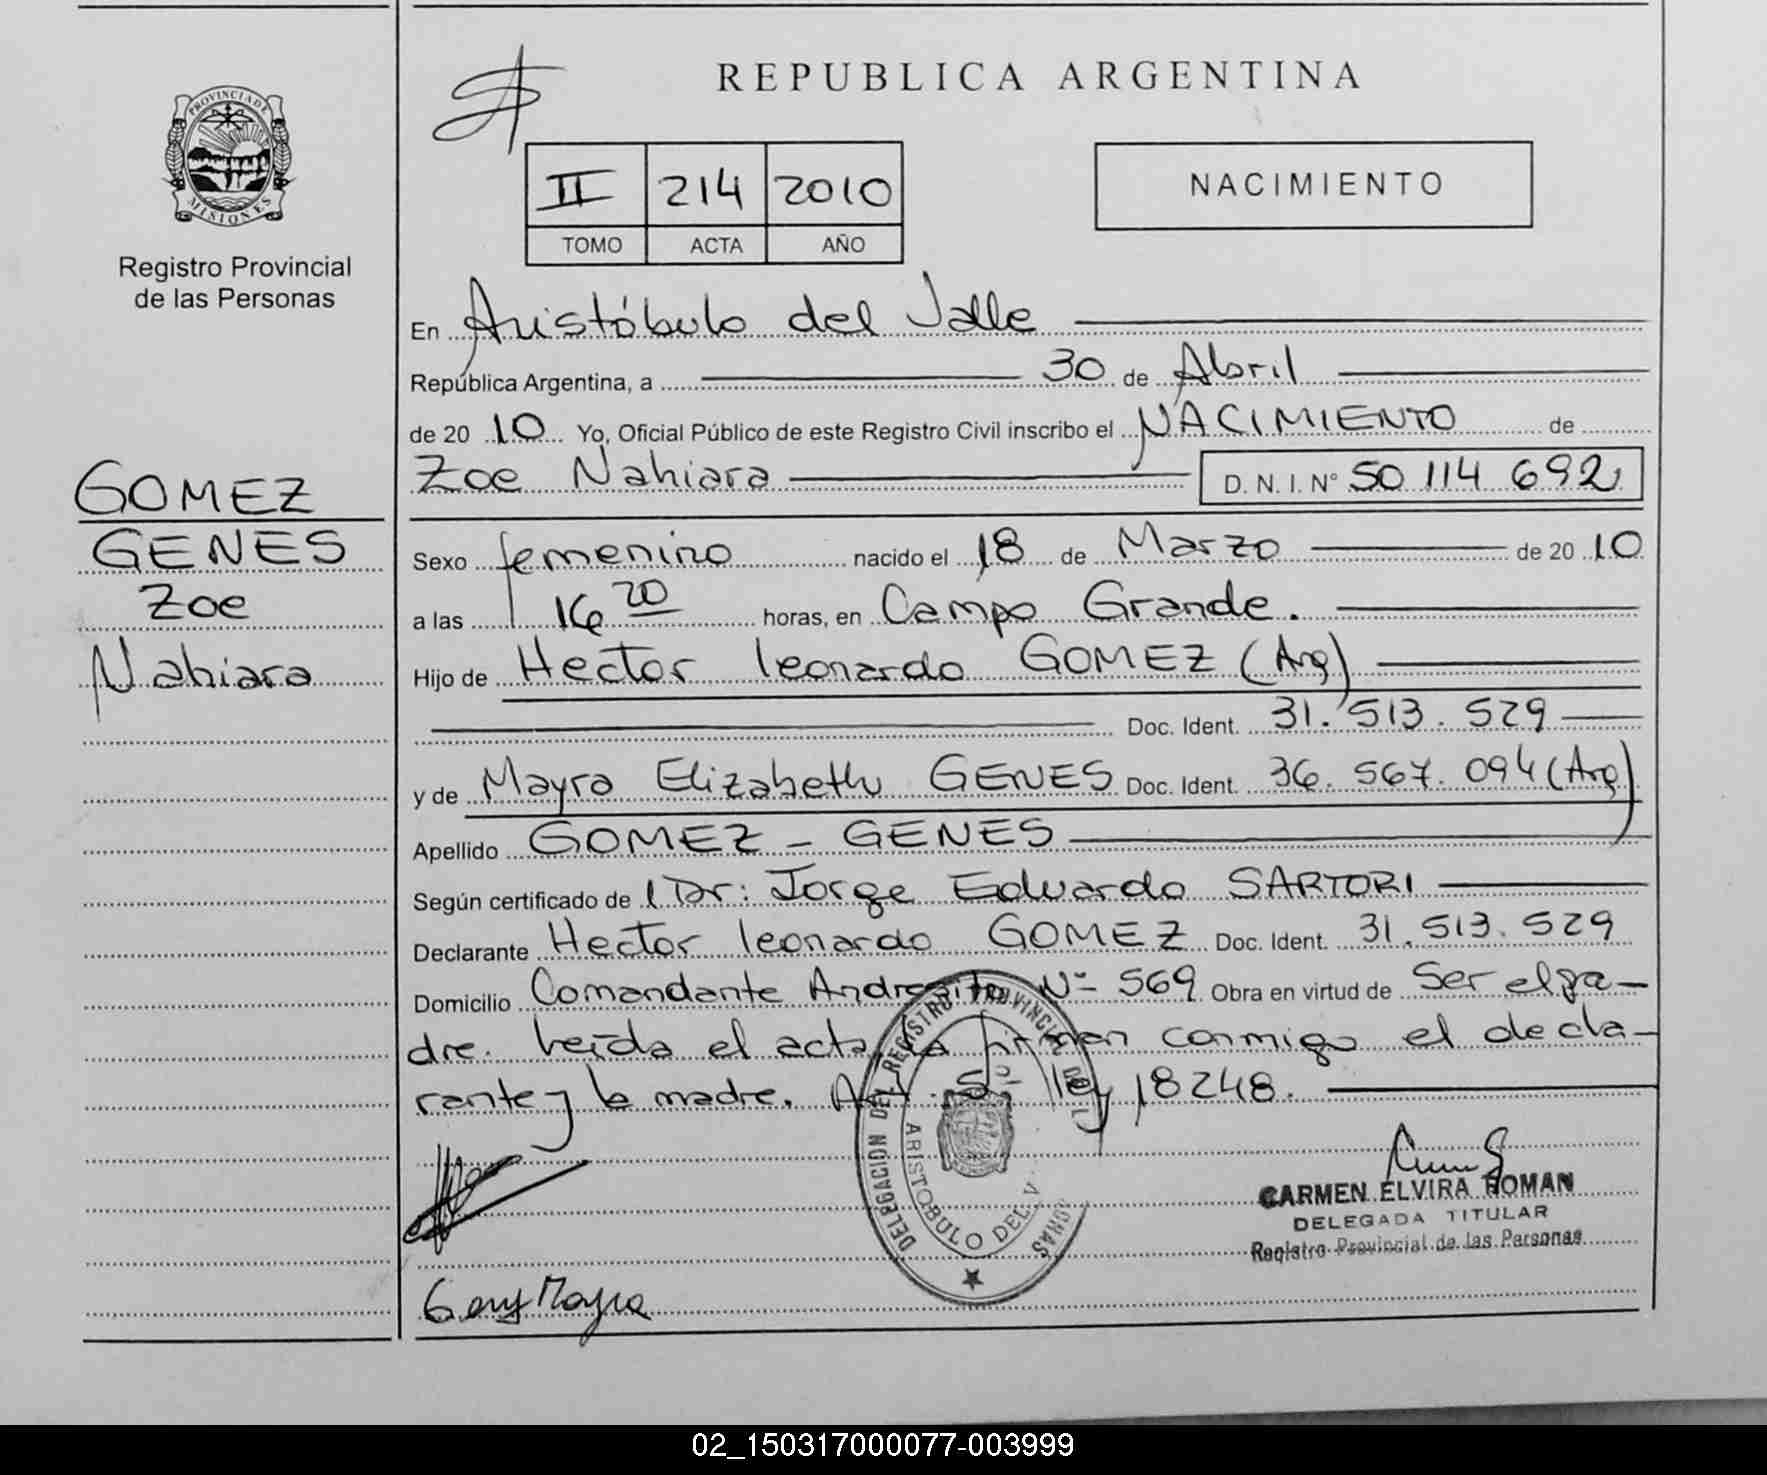 REPUBLICA ARGENTINA
PROVINCIA DE
MISIONES
Registro Provincial
de las Personas
II 214 2010
TOMO ACTA AÑO
NACIMIENTO
En Aristóbulo del Valle
República Argentina, a 30 de Abril
de 20 10 Yo, Oficial Público de este Registro Civil inscribo el NACIMIENTO de
Zoe Nahiara D. N. I. N° 50 114 692
GOMEZ
GENES
Zoe
Nahiara
Sexo femenino nacido el 18 de Marzo de 20 10
a las 16 20 horas, en Campo Grande.
Hijo de Hector leonardo GOMEZ (Arg)
Doc. Ident. 31.513.529
y de Mayra Elizabeth GENES Doc. Ident. 36.567.094 (Arg)
Apellido GOMEZ - GENES
Según certificado de l Dr: Jorge Eduardo SARTORI
Declarante Hector leonardo GOMEZ Doc. Ident. 31.513.529
Domicilio Comandante Andresito N° 569 Obra en virtud de Ser el pa-
dre. leída el acta, la firman conmigo el decla-
rante y la madre. Art. 5, ley 18248.
DELEGACION DEL REGISTRO PROVINCIAL DE L
ARISTOBULO DEL V
CARMEN ELVIRA ROMAN
DELEGADA TITULAR
Registro Provincial de las Personas
Mayra
02_150317000077-003999